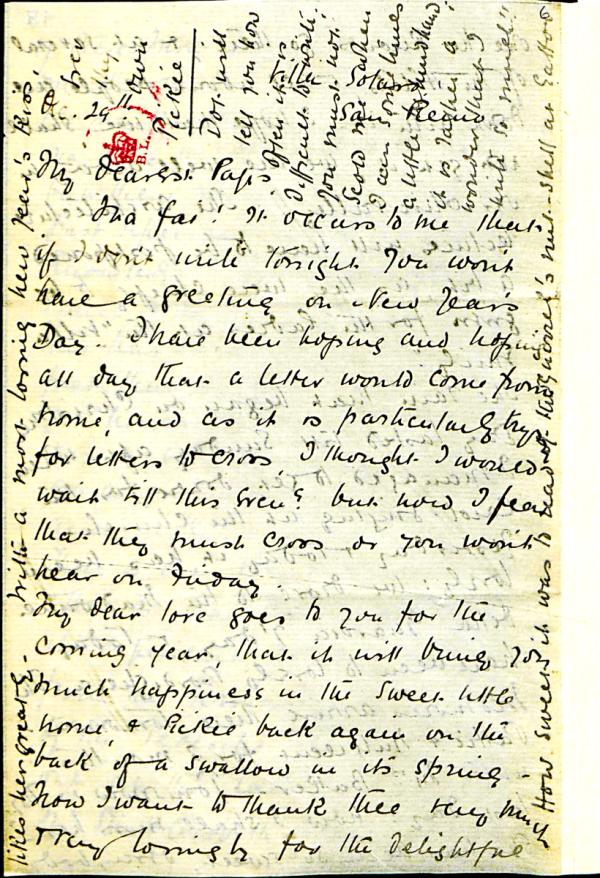 Villa Solari
San Remo
Dc. 29th
My dearest Paps.
Ina fas! It occurs to me that
if I don't write tonight you won't
have a greeting on New Year's
Day. I have been hoping and hoping
all day that a letter would come from
home, and as it is particularly
for letters to cross, I thought I would
wait till this Eveng. but now I fear
that they must cross or you won't
hear on Friday.
My dear love goes to you for the
coming year, that it will bring you
much happiness in the sweet little
home, & Pickie back again on the
back of a swallow in its spring.
Now I want to thank thee very much
very lovingly for the delightful
own
Pickie
Dot will
tell you how
often it is
difficult to write.
You must not
scold me when
I am sometimes
a little
it is rather a
wonder that I
write so much!!
with a most loving New Year's kiss.
How sweet it was to read of the squirrel's nut-shell at
B.L.
6